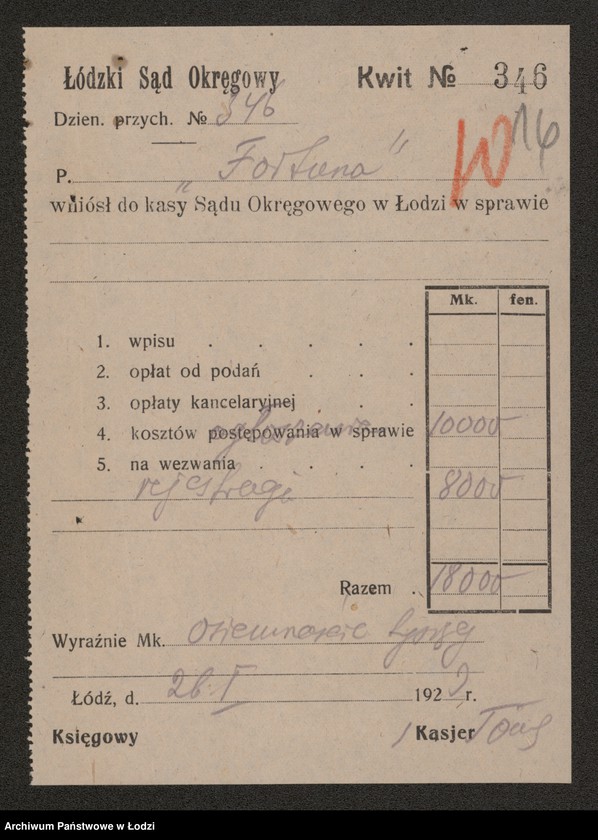 Łódzki Sąd Okręgowy Kwit № 346
Dzien. przych. № 346
16
P. „Fortuna”
wniósł do kasy Sądu Okręgowego w Łodzi w sprawie
Mk. fen.
1. wpisu . . . . .
2. opłat od podań . . .
3. opłaty kancelaryjnej . . .
ogłoszenie
4. kosztów postępowania w sprawie 10000
5. na wezwania . . . .
rejestracji 8000
Razem . 18000
Wyraźnie Mk. Osiemnaście tysięcy
Łódź, d. 26. I 192 r.
Księgowy Kasjer
Archiwum Państwowe w Łodzi